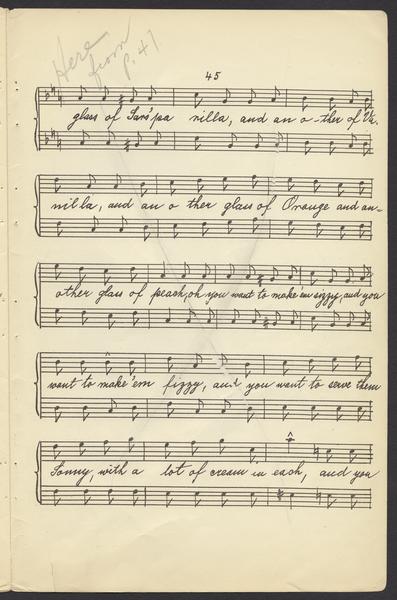 Here
from
p. 47
45
glass of Sars'pa nilla, and an o-ther of Va-
nilla, and an o ther glass of Orange and an-
other glass of peach, oh you want to make'em fizzy, and you
want to make'em fizzy, and you want to serve them
Sonny, with a lot of cream in each, and you